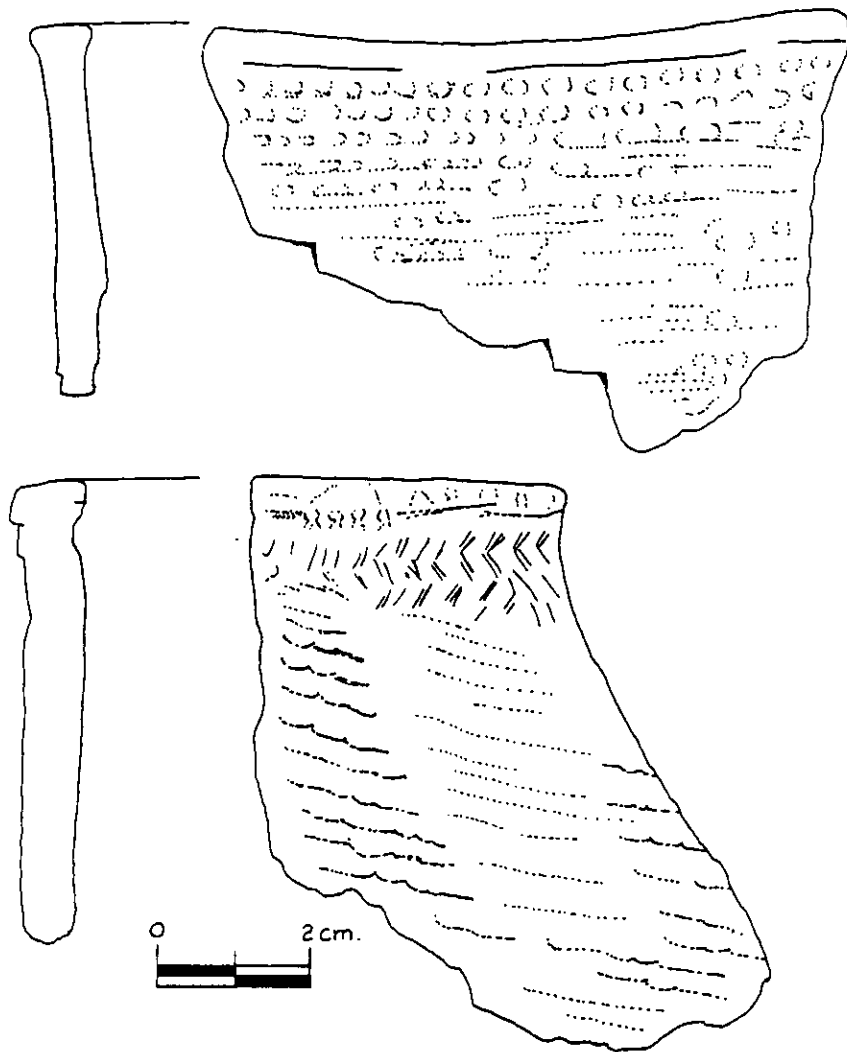 0 2 cm.